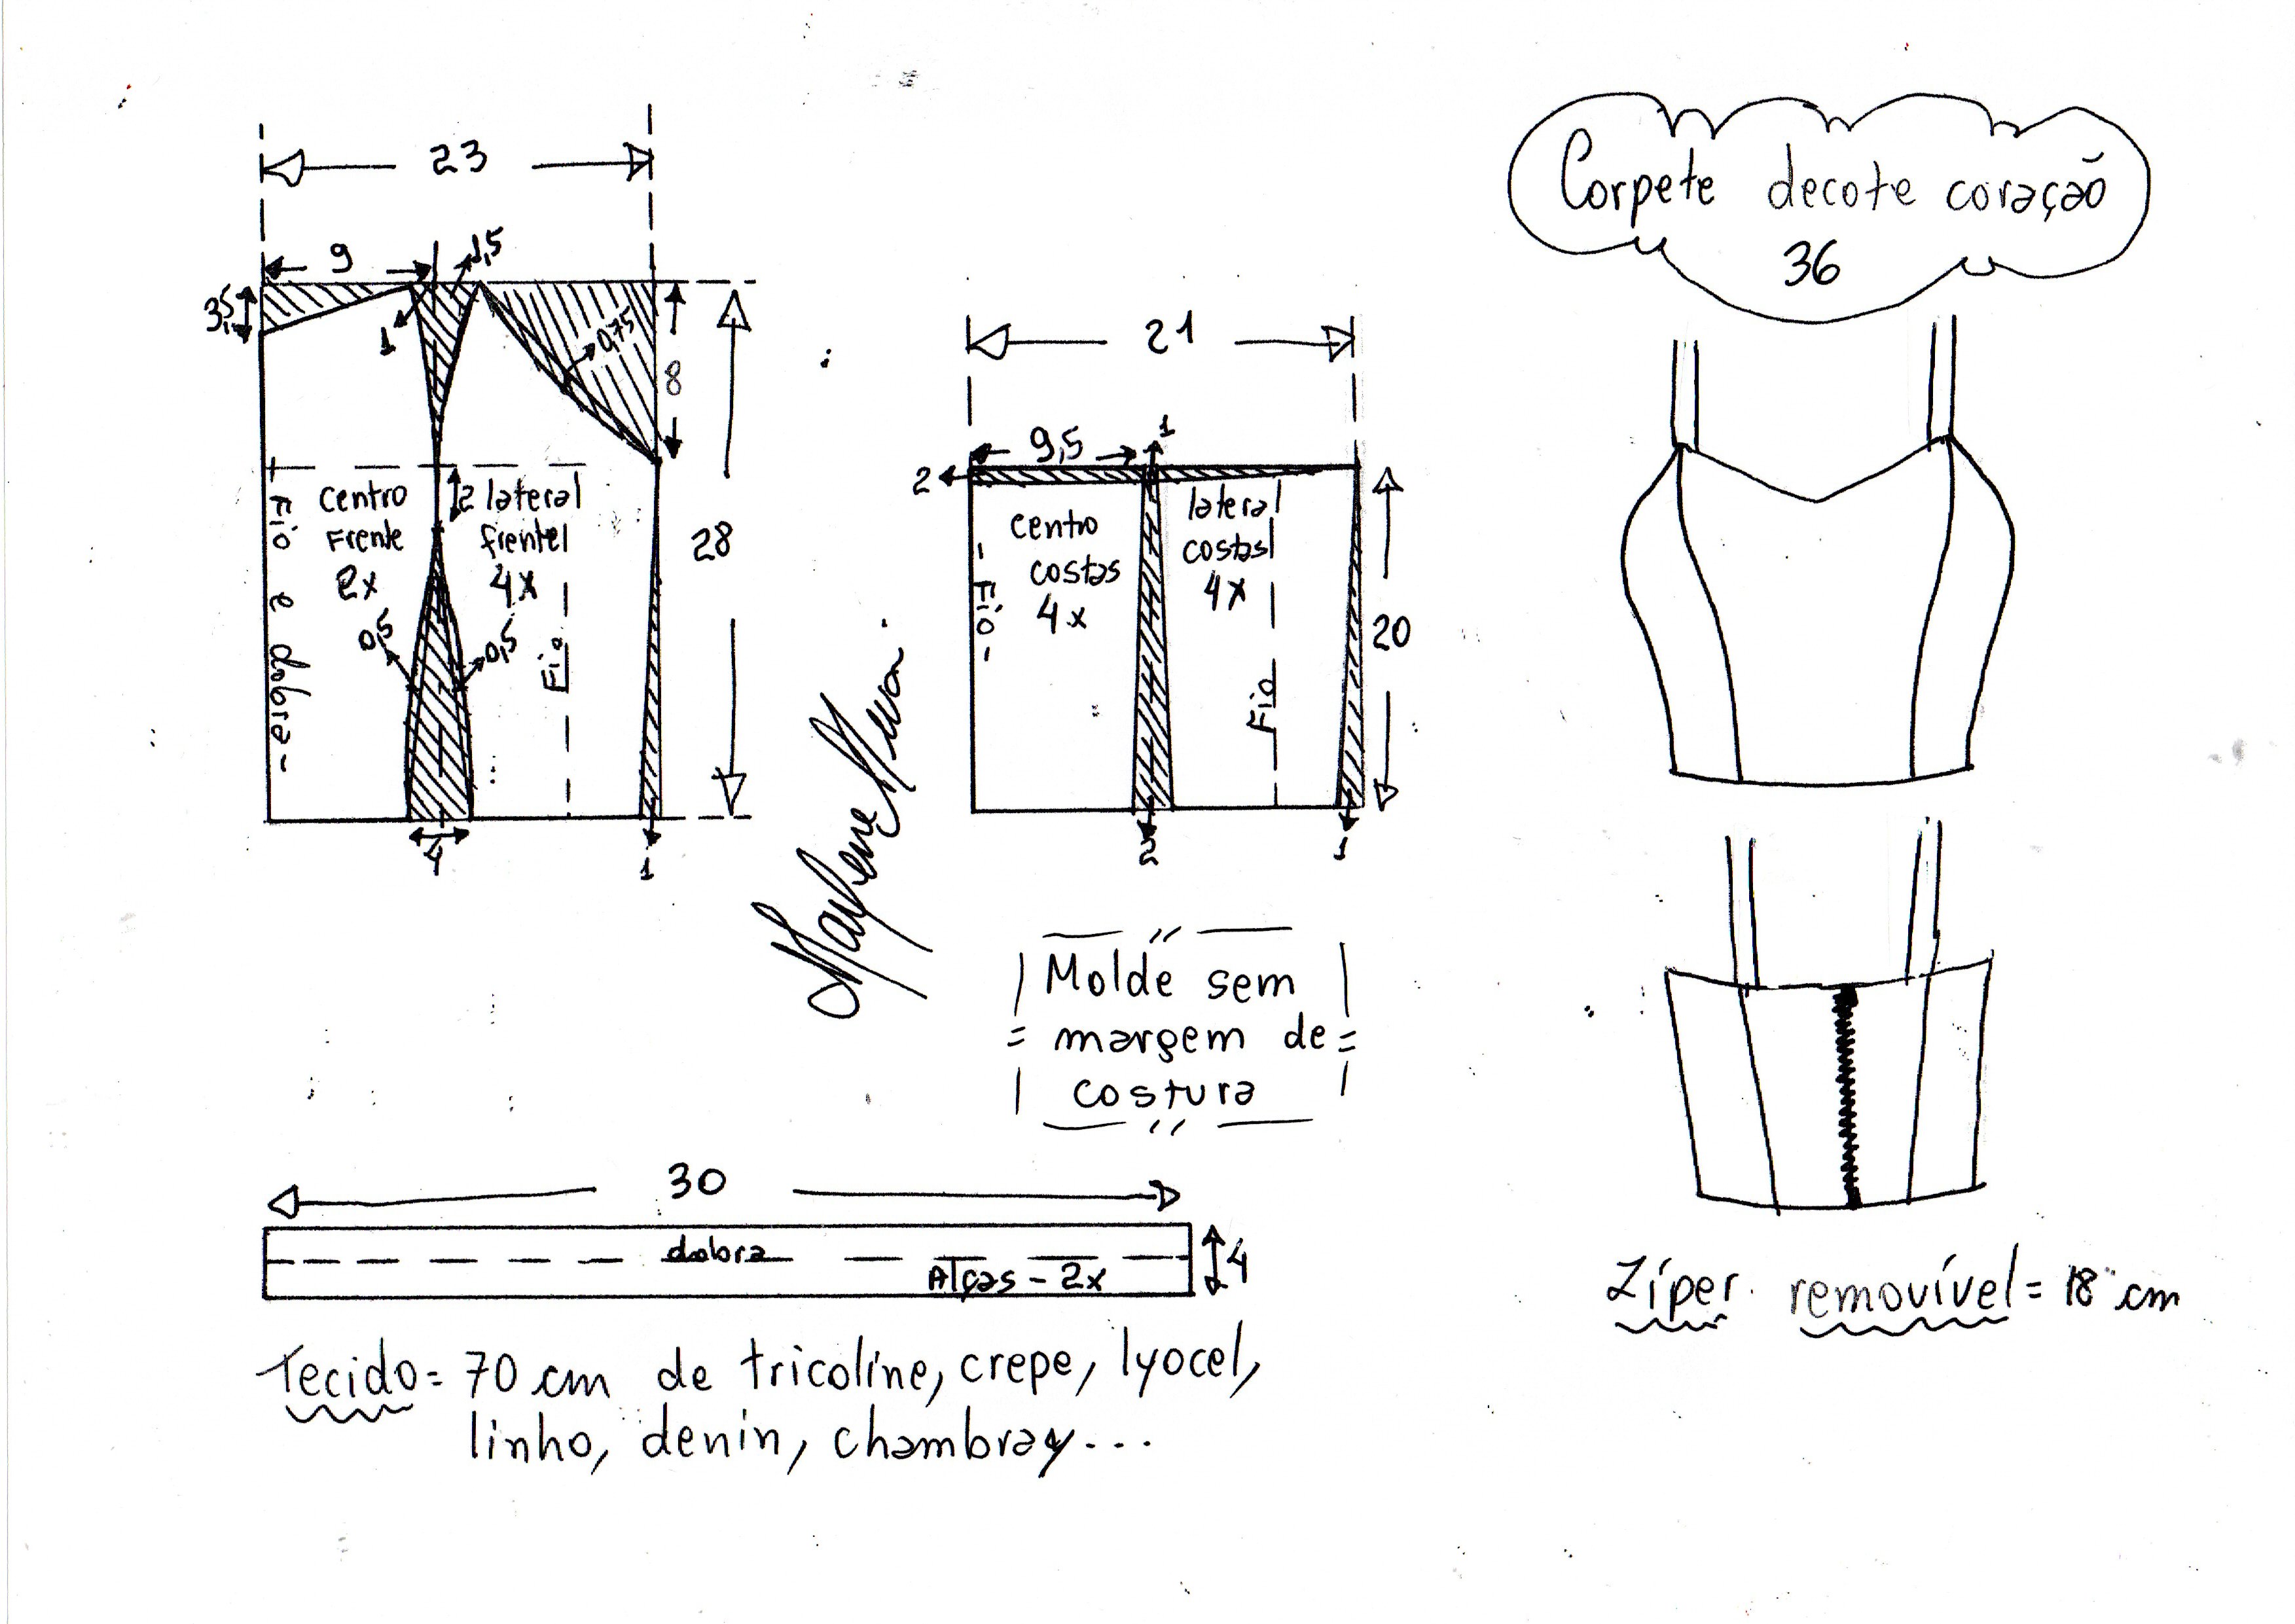 Corpete decote coração
36
23
9
1,5
3,5
1
0,75
8
2
28
centro
Frente
2x
lateral
frente
4x
0,5
0,5
Fio e dobra-
Fio
4
1
21
9,5
1
2
centro
costas
4x
lateral
costas
4x
-Fio-
Fio
20
2
1
Molde sem
margem de
costura
30
dobra
Alças - 2x
4
Tecido = 70 cm de tricoline, crepe, lyocel,
linho, denin, chambray...
Zíper removível = 18 cm